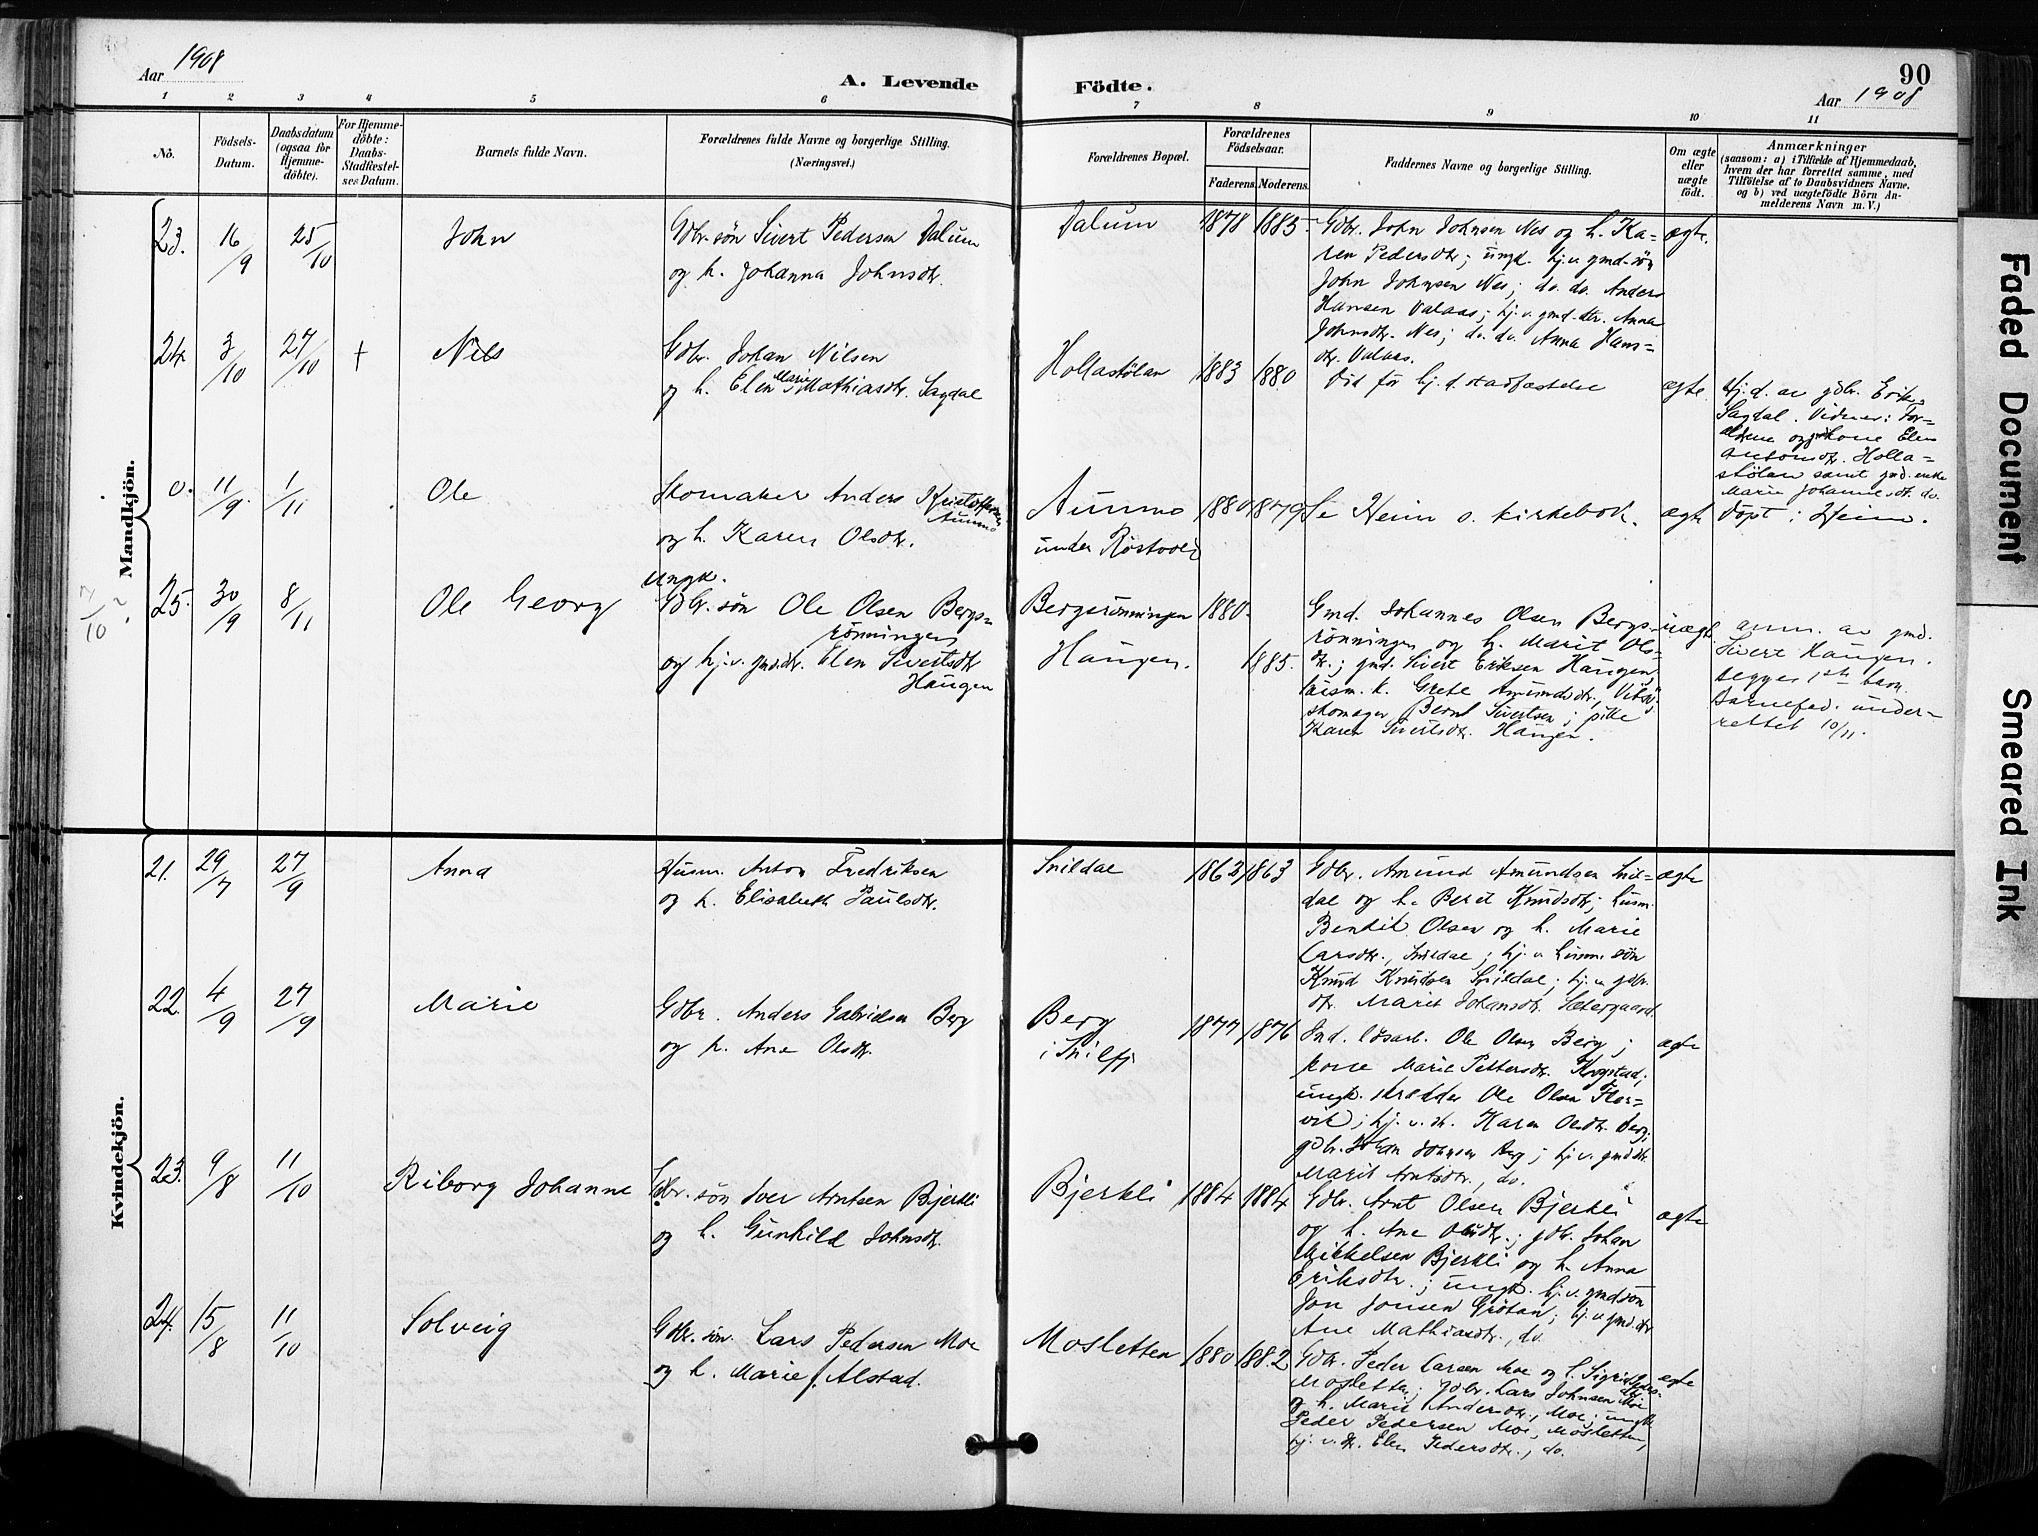 Aar 1908
A. Levende
Födte.
90
Aar 1908
1 2 3 4 5 6 7 8 9 10 11
No.
Födsels-
Datum.
Daabsdatum
(ogsaa for
Hjemme-
döbte).
For Hjemme-
döbte:
Daabs-
Stadfæstel-
ses Datum.
Barnets fulde Navn.
Forældrenes fulde Navne og borgerlige Stilling.
(Næringsvei.)
Forældrenes Bopæl.
Forældrenes
Födselsaar.
Faderens. Moderens.
Faddernes Navne og borgerlige Stilling.
Om ægte
eller
uægte
födt.
Anmærkninger
(saasom: a) i Tilfælde af Hjemmedaab,
hvem der har forrettet samme, med
Tilföielse af to Daabsvidners Navne.
og b) ved uægtefödte Börn An-
melderens Navn m. V.)
Mandkjön.
23. 16/9 25/10 John
Gdbr. søn Sivert Pedersen Dalum
og h. Johanna Johnsdtr.
Dalum 1878 1885
Gdbr. John Johnsen Nes og h. Ka=
ren Pedersdtr; ungk. hj. v. gmd. søn
John Johnsen Nes; do. do. Anders
Hansen Valaas; hj. v. gmd. dtr. Anna
Johnsdtr. Nes; do. do. Anna Hans=
dtr. Valaas.
ægte.
24 3/10 27/10 + Nils
Gdbr. Johan Nilsen
og h. Elen Marie Mathiasdtr. Sagdal
Hollastølan 1883 1880
Vid for hj. d. stadfæstelse
ægte
Hj. d. av gdbr. Erik
Sagdal. Vidner: For=
ældrene og kone Elen
Antonsdtr. Holla=
stølan samt gmd. enke
Marie Johannesdtr. do.
0. 11/9 1/11 Ole
Skomaker Anders Kristoffersen
Aunmo
og h. Karen Olsdtr.
Aunmo
under Rostvold
1880 1879
Se Heim s. kirkebok.
ægte
Døpt i Heim.
7/10 ?
25. 30/9 8/11 Ole Georg
Ungk.
Gdbr. søn Ole Olsen Bergs=
rönningen
og hj. v. gmd. dtr. Elen Sivertsdtr
Haugen
Bergsrönningen 1880
Haugen. 1885.
Gmd. Johannes Olsen Bergs-
rönningen og h. Marit Ols=
dtr.; gmd. Sivert Eriksen Haugen;
husm. k. Grete Amundsdtr,
skomager Bernt Sivertsen; pike
Karen Sivertsdtr. Haugen.
uægte
anm. av gmd.
Sivert Haugen.
begges 1ste barn.
Barnefad. under=
rettet 10/11.
Kvindekjön.
21. 29/7 27/9 Anna
Husm. Anton Fredriksen
og h. Elisabeth Paulsdtr.
Snildal 1863 1863
Gdbr. Amund Amundsen Snil=
dal og h. Beret Knudsdtr; husm.
Bendik Olsen og h. Marie
Larsdtr., Snildal; hj. v. husm. søn
Knud Knudsen Snildal; hj. v. gdbr.
dtr. Marit Johansdtr. Sætergaard
ægte
22. 4/9 27/9 Marie
Gdbr. Anders Gabrielsen Berg
og h. Ane Olsdtr.
Berg
i Snilfj
1877 1876
Ind. løsarb. Ole Olsen Berg;
kone Marie Pettersdtr. Krogstad;
ungk. skrædder Ole Olsen Flor=
vik; hj. v. dtr. Karen Olsdtr. Berg;
gdbr. Johan Johnsen Berg; hj. v. gmd. dtr.
Marit Arntsdtr., do.
ægte
23. 9/8 11/10 Riborg Johanne
Gdbr. søn Iver Arntsen Bjerkli
og h. Gunhild Johnsdtr.
Bjerkli 1884 1884
Gdbr. Arnt Olsen Bjerkli
og h. Ane Olsdtr.; gdbr. Johan
Mikkelsen Bjerkli og h. Anna
Eriksdtr.; ungk. hj. v. gmd søn
Jon Jonsen Grötan; hj. v. gmd. dtr
Ane Mathiasdtr., do.
ægte
24. 15/8 11/10 Solveig
Gdbr. søn. Lars Pedersen Moe
og h. Marie f. Alstad.
Mosletten 1880 1882
Gdbr. Peder Larsen Moe og h. Sigrid
Mosletten; gdbr. Lars Johnsen Moe
og h. Marit Andersdtr., Moe; ungk
Peder Pedersen Moe, Mosletten,
hj. v. dtr. Elen Pedersdtr., do.
ægte
Faded Document
Smeared Ink